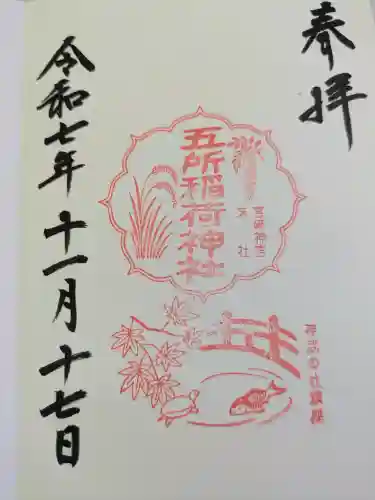 奉拝
五所稲荷神社
末社
令和七年十一月十七日